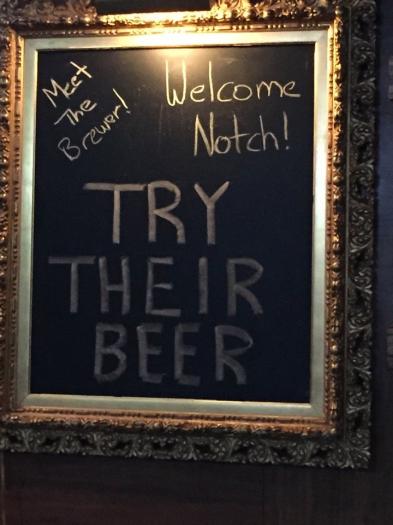 Meet
The
Brewer!
Welcome
Notch!
TRY
THEIR
BEER